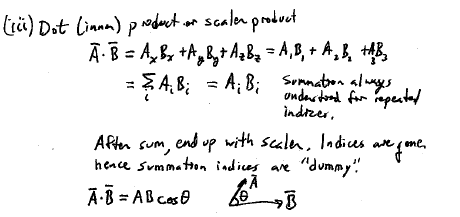 (iii) Dot (inner) product or scaler product
A̅·B̅ = AₓBₓ + A_yB_y + A_zB_z = A₁B₁ + A₂B₂ + A₃B₃
= Σᵢ AᵢBᵢ = AᵢBᵢ Summation always
understood for repeated
indices.
After sum, end up with scaler. Indices are gone,
hence summation indices are "dummy".
A̅·B̅ = AB cosθ θ A̅ B̅